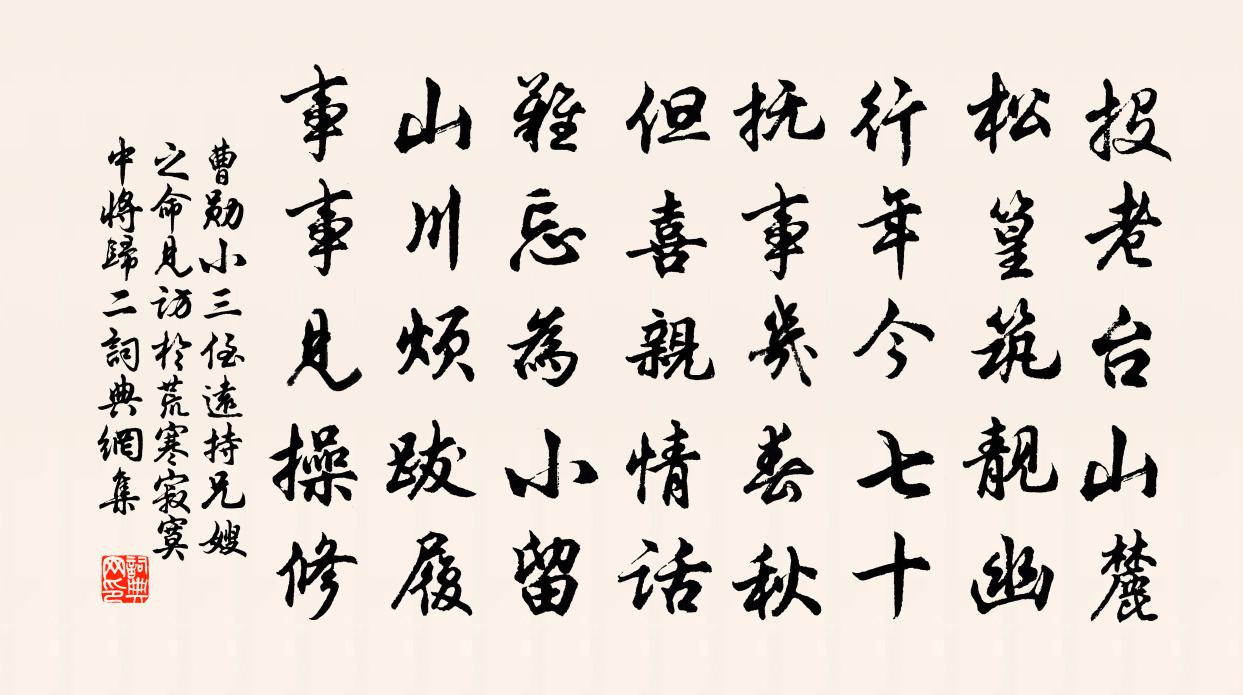 投老台山麓
松篁筑靓幽
行年今七十
抚事幾春秋
但喜親情话
難忘為小留
山川烦跋履
事事見操修
曹勋小三侄遠持兄嫂
之命見访於荒寒寂寞
中将歸二詞典網集
詞典网印